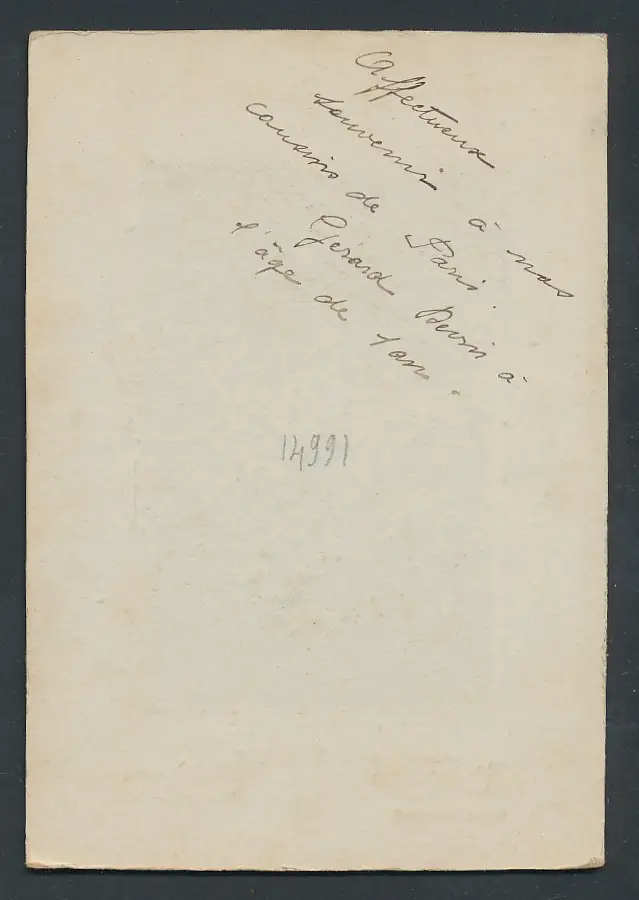 Affectueux
souvenir à nos
cousins de Paris.
Gérard à
l'âge de 1 an.
14991